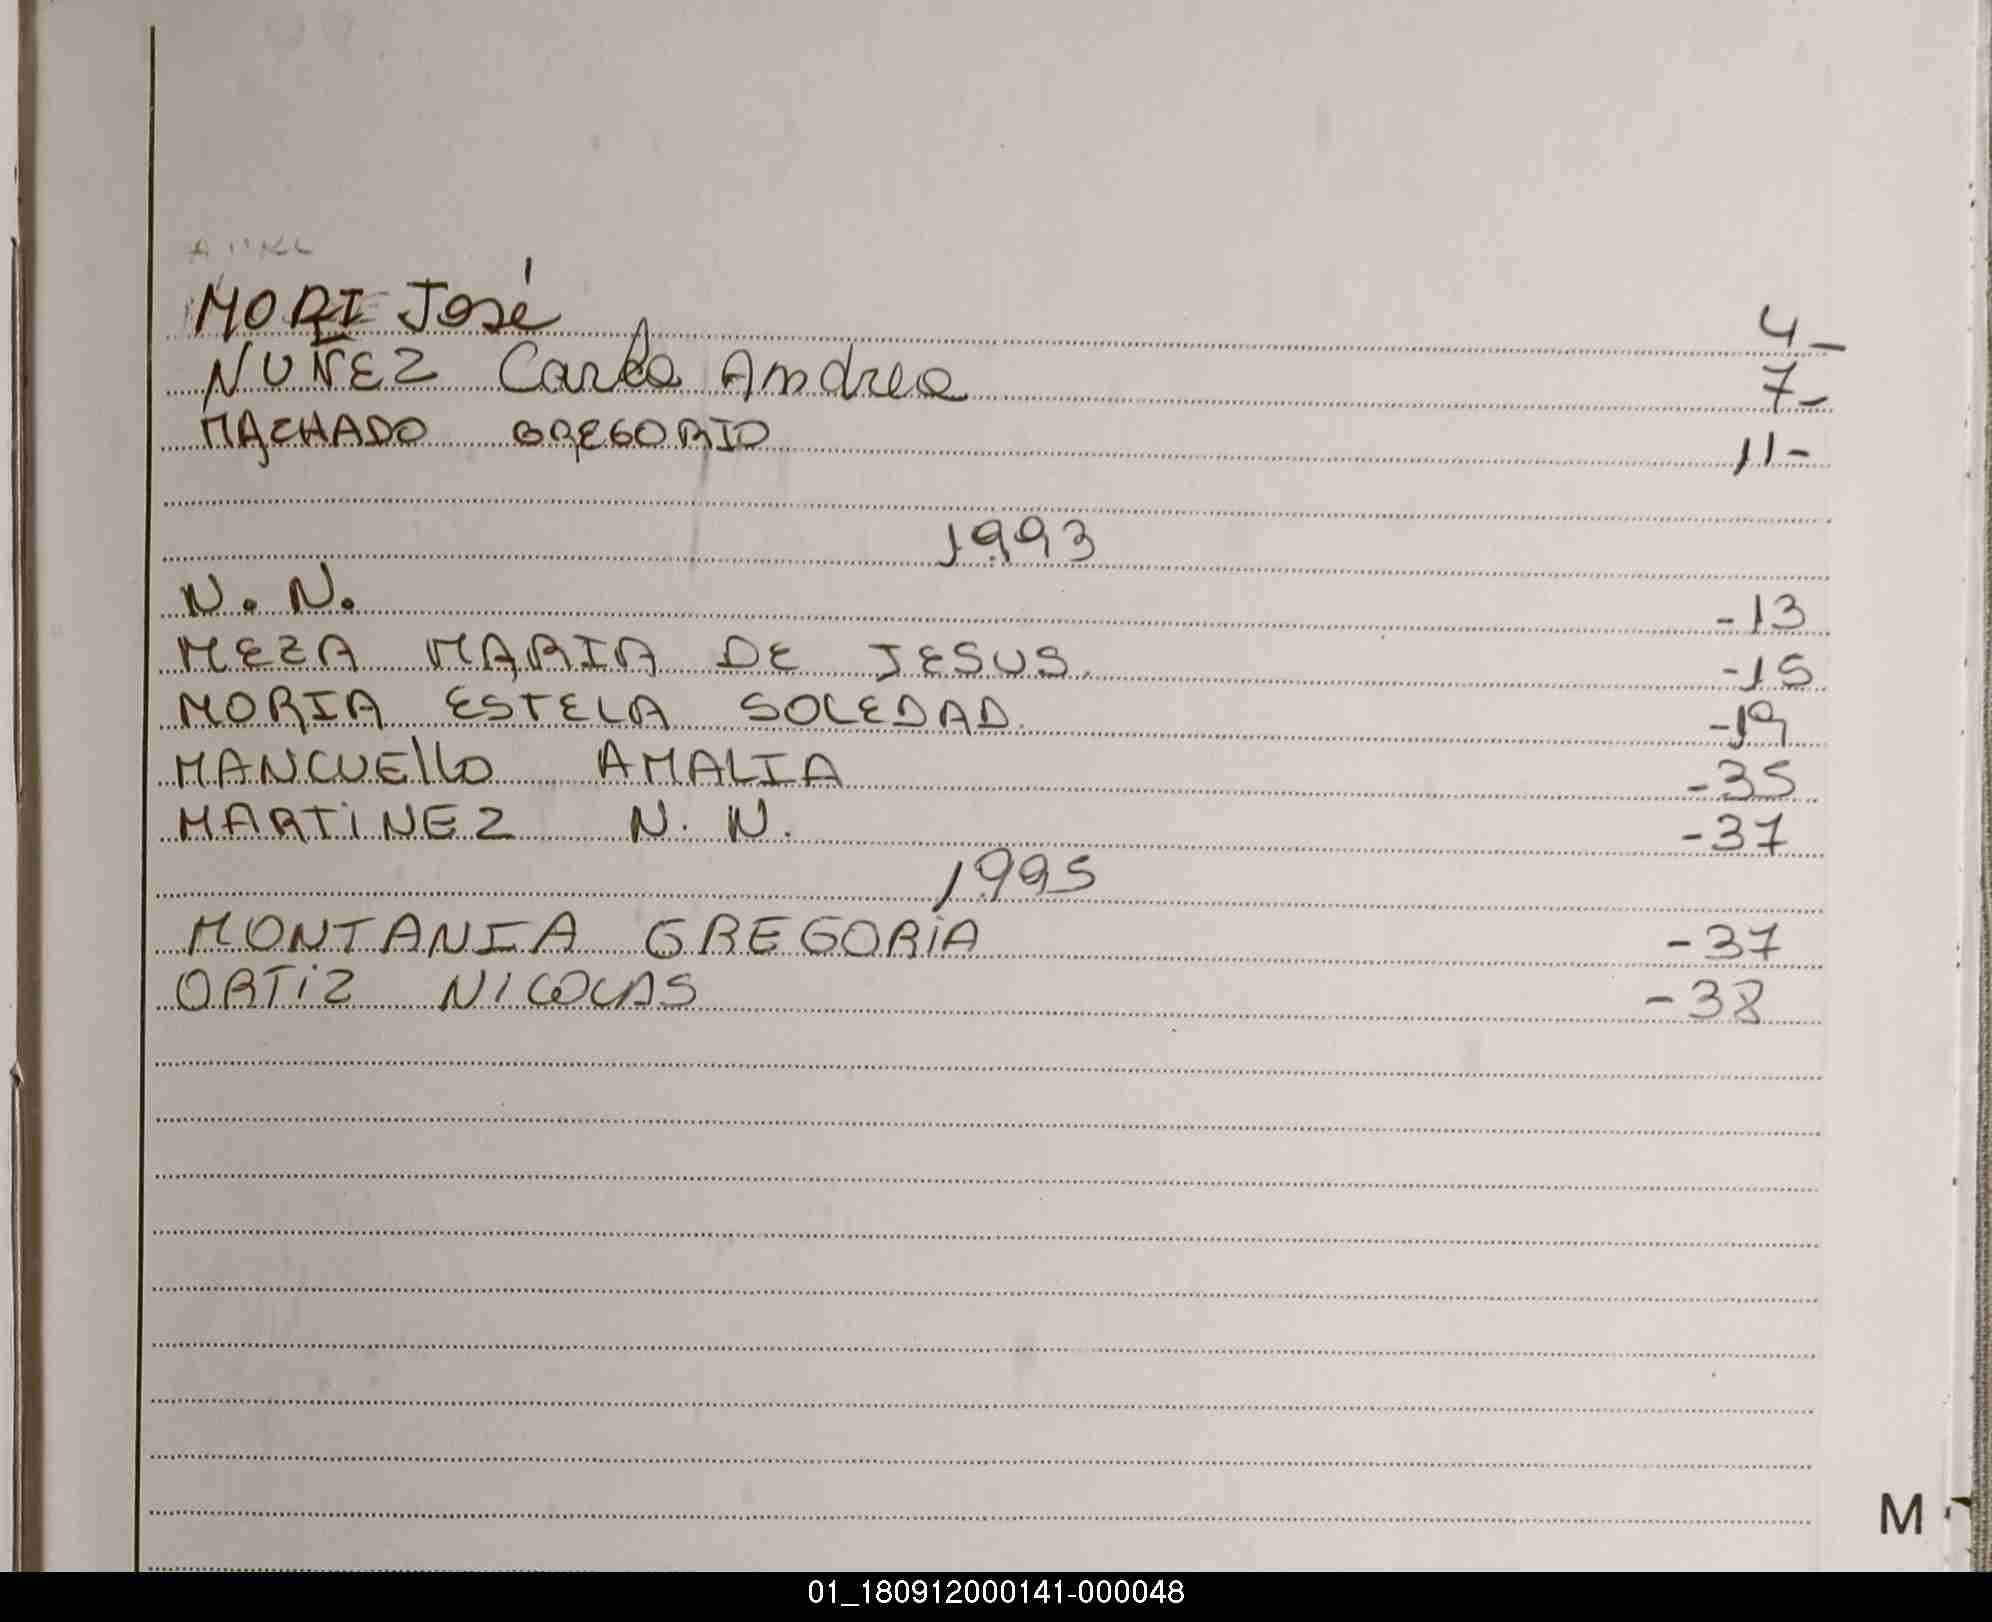 MORI José 4-
NUÑEZ Carla Andrea 7-
MACHADO GREGORIO 11-
1993
N. N. -13
MEZA MARIA DE JESUS. -15
MORIA ESTELA SOLEDAD. -19
MANCUEllO AMALIA -35
MARTiNEZ N. N. -37
1995
MONTANIA GREGORiA -37
ORTiZ NICOLAS -38
M
01_180912000141-000048